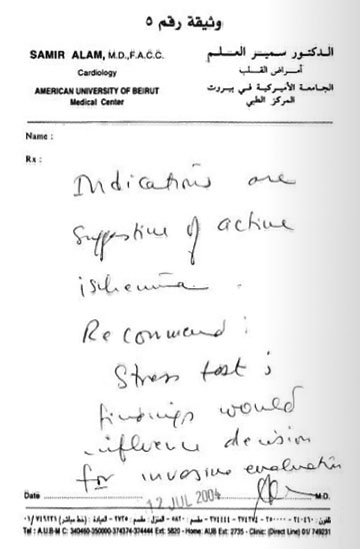 وثيقة رقم ٥
SAMIR ALAM, M.D., F.A.C.C.
Cardiology
AMERICAN UNIVERSITY OF BEIRUT
Medical Center
الدكتور سمير العلم
أمراض القلب
الجامعة الأميركية في بيروت
المركز الطبي
Name :
Rx :
Indications are
suggestive of active
ischemia.
Recommend :
Stress test ;
findings would
influence decision
for invasive evaluation
Date
12 JUL 2004
M.D.
Tel : A.U.B-M C: 340460-350000-374374-374444 Ext: 5820 - Home: AUB Ext: 2735 - Clinic: (Direct Line) 01/ 749231